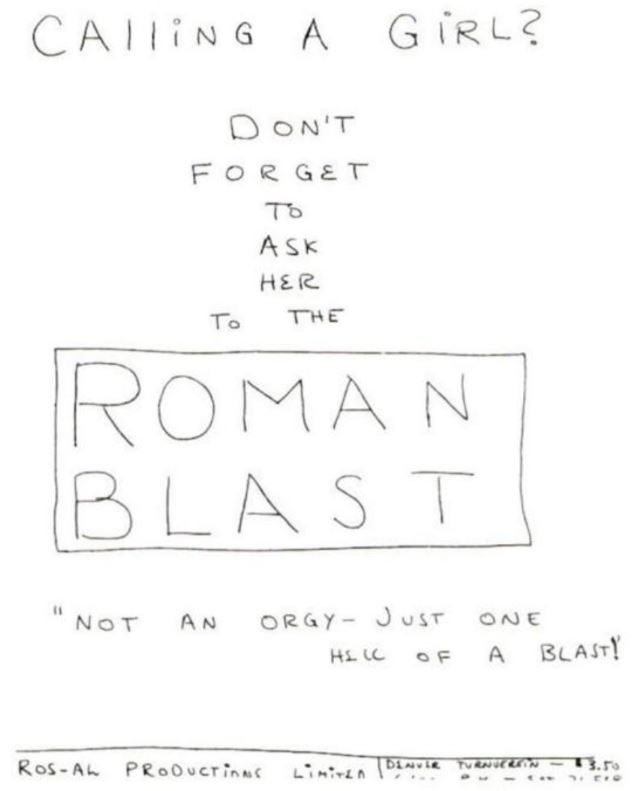 CAlliNG A GiRL?
DON'T
FORGET
TO
ASK
HER
TO THE
ROMAN
BLAST
"NOT AN ORGY- JUST ONE
HELL OF A BLAST!
ROS-AL PRODUCTiONS LiMiTED DENVER TURNVEREIN - $3.50